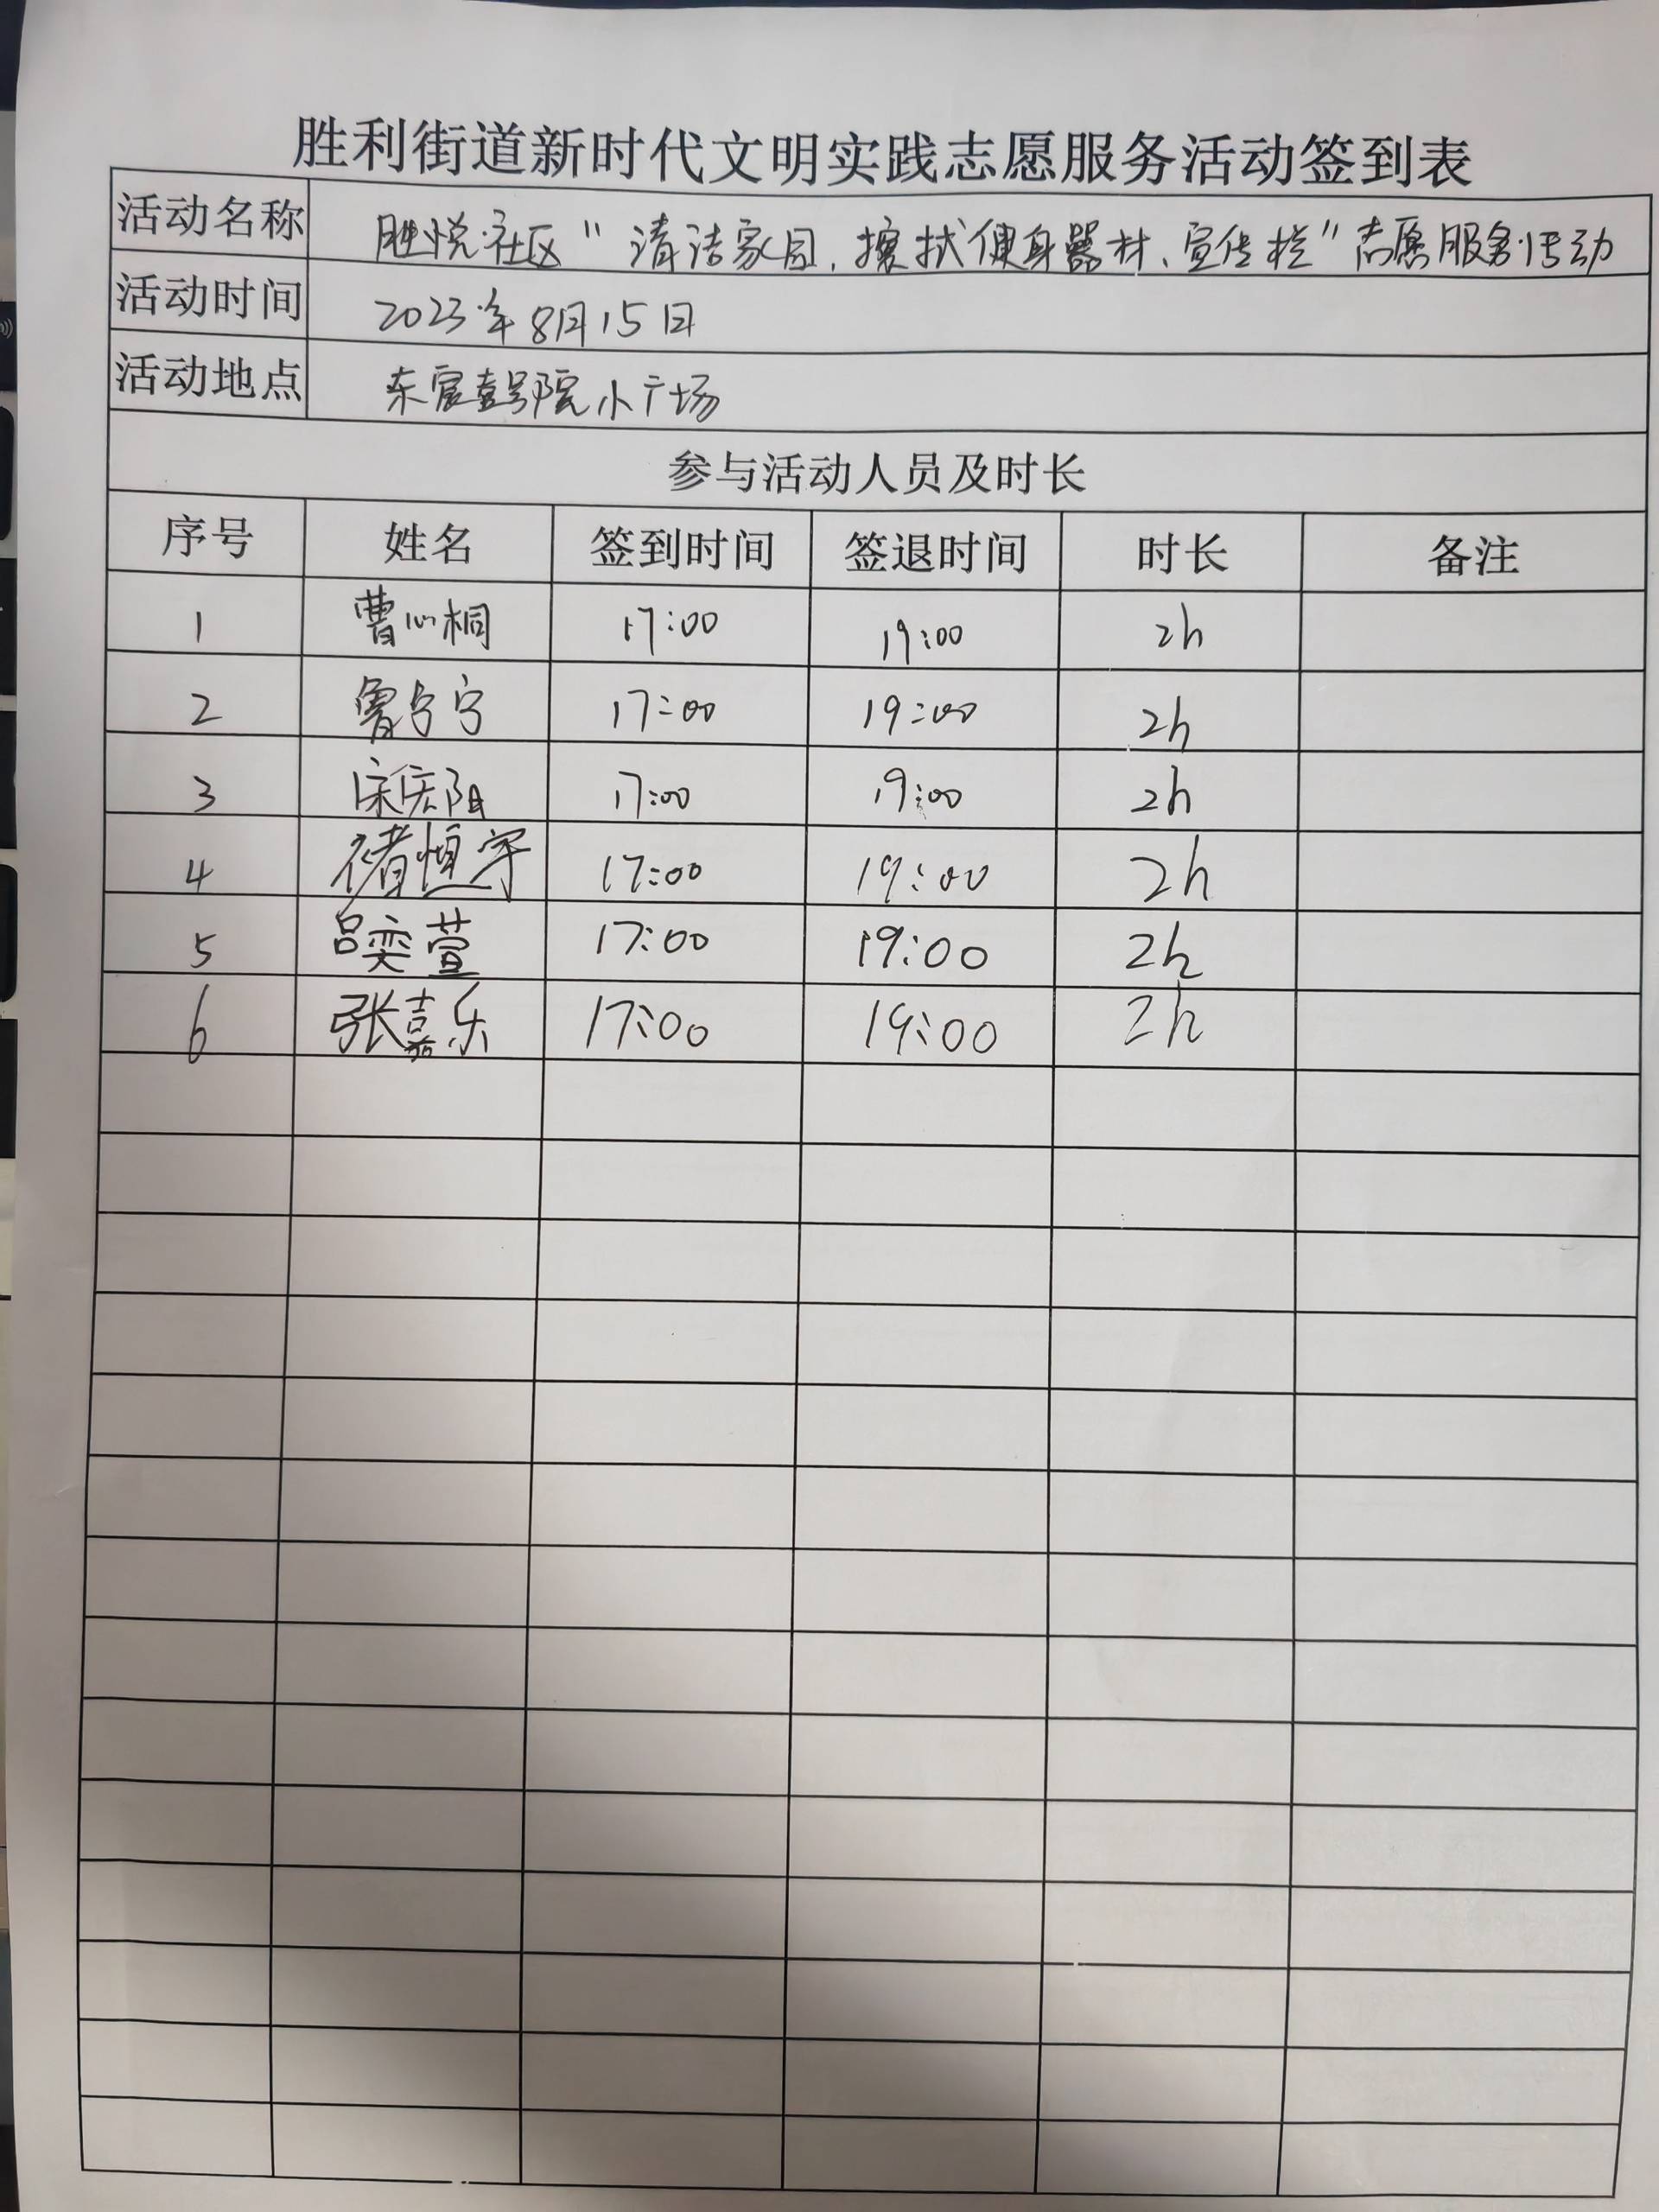 胜利街道新时代文明实践志愿服务活动签到表
活动名称 胜悦社区"清洁家园,擦拭健身器材、宣传栏"志愿服务活动
活动时间 2023年8月15日
活动地点 东宸壹号院小广场
参与活动人员及时长
序号 姓名 签到时间 签退时间 时长 备注
1 曹心桐 17:00 19:00 2h
2 鲁宁宁 17:00 19:00 2h
3 宋庆阳 17:00 19:00 2h
4 褚恒宇 17:00 19:00 2h
5 吕奕萱 17:00 19:00 2h
6 张嘉乐 17:00 19:00 2h